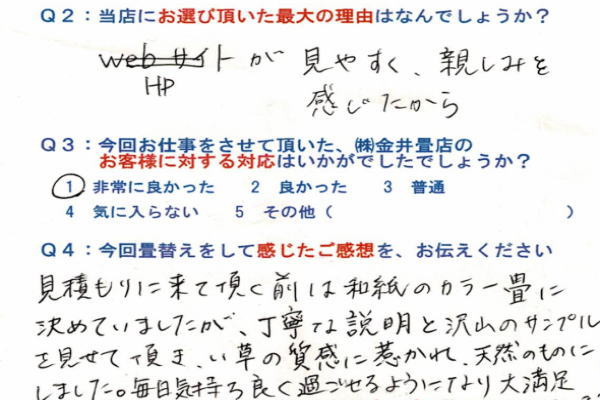 Q2：当店にお選び頂いた最大の理由はなんでしょうか？
webサイトが 見やすく、親しみを
HP
感じたから
Q3：今回お仕事をさせて頂いた、㈱金井畳店の
お客様に対する対応はいかがでしたでしょうか？
1 非常に良かった 2 良かった 3 普通
4 気に入らない 5 その他（ ）
Q4：今回畳替えをして感じたご感想を、お伝えください
見積もりに来て頂く前は和紙のカラー畳に
決めていましたが、丁寧な説明と沢山のサンプル
を見せて頂き、い草の質感に惹かれ、天然のものに
しました。毎日気持ち良く過ごせるようになり大満足